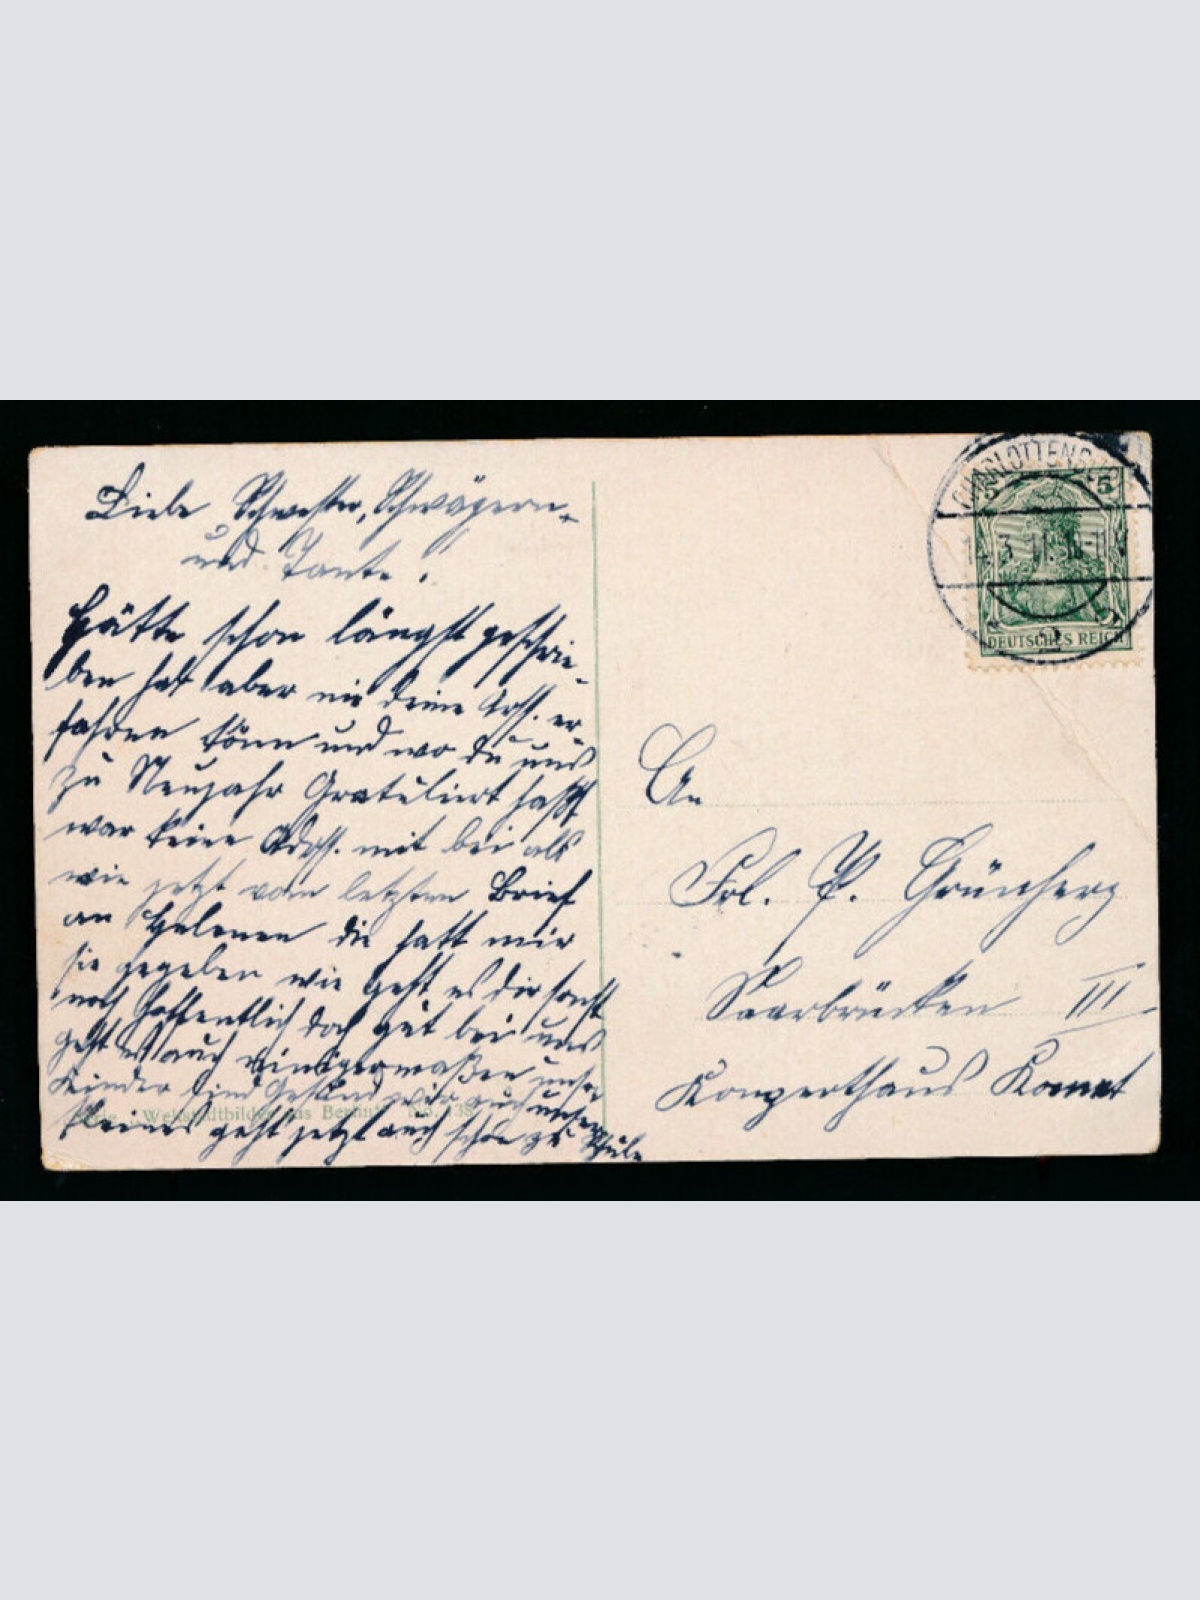 Liebe Schwester, Schwägerin
und Tante!
Hätte schon längst geschrie-
ben hab aber nie deine Adss. er-
fahren könn und wo du uns
zu Neujahr Gratuliert hast
war keine Adrss. mit bei als
wie jetzt vom letzten Brief
an Helenen die hatt mir
sie gegeben wie geht es dir sonst
noch hoffentlich doch gut bei uns
geht es auch einigermaßen unsre
Kinder sind Gesund wir auch unser
kleines geht jetzt auch schon zu Schule
Weltstadtbilder aus Berlin
CHARLOTTENBURG
14.3.11. 10-11 V
5
DEUTSCHES REICH
An
Frl. P. Grünherz
Saarbrücken III
Konzerthaus Komet